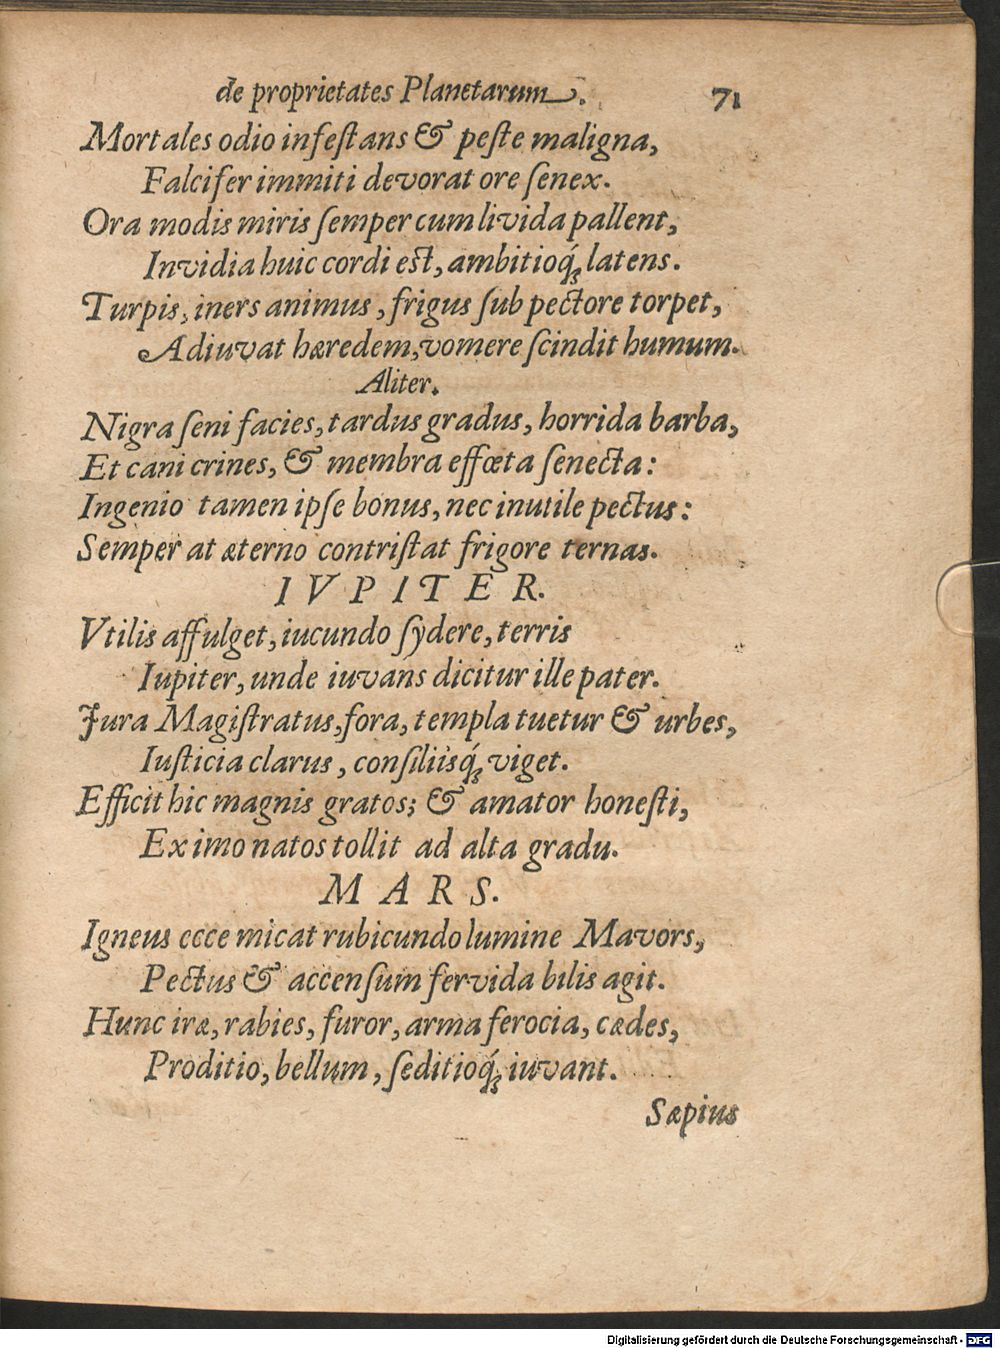 de proprietates Planetarum. 71
Mortales odio infeſtans & peſte maligna,
Falcifer immiti devorat ore ſenex.
Ora modis miris ſemper cum livida pallent,
Invidia huic cordi eſt, ambitioq́ꝫ latens.
Turpis, iners animus, frigus ſub pectore torpet,
Adiuvat hæredem, vomere ſcindit humum.
Aliter.
Nigra ſeni facies, tardus gradus, horrida barba,
Et cani crines, & membra effœta ſenecta:
Ingenio tamen ipſe bonus, nec inutile pectus:
Semper at æterno contriſtat frigore ternas.
IVPITER.
Vtilis affulget, iucundo ſydere, terris
Iupiter, unde iuvans dicitur ille pater.
Jura Magiſtratus, fora, templa tuetur & urbes,
Iuſticia clarus, conſiliisq́ꝫ viget.
Efficit hic magnis gratos; & amator honeſti,
Ex imo natos tollit ad alta gradu.
MARS.
Igneus ecce micat rubicundo lumine Mavors,
Pectus & accenſum fervida bilis agit.
Hunc iræ, rabies, furor, arma ferocia, cædes,
Proditio, bellum, ſeditioq́ꝫ iuvant.
Sæpius
Digitalisierung gefördert durch die Deutsche Forschungsgemeinschaft - DFG